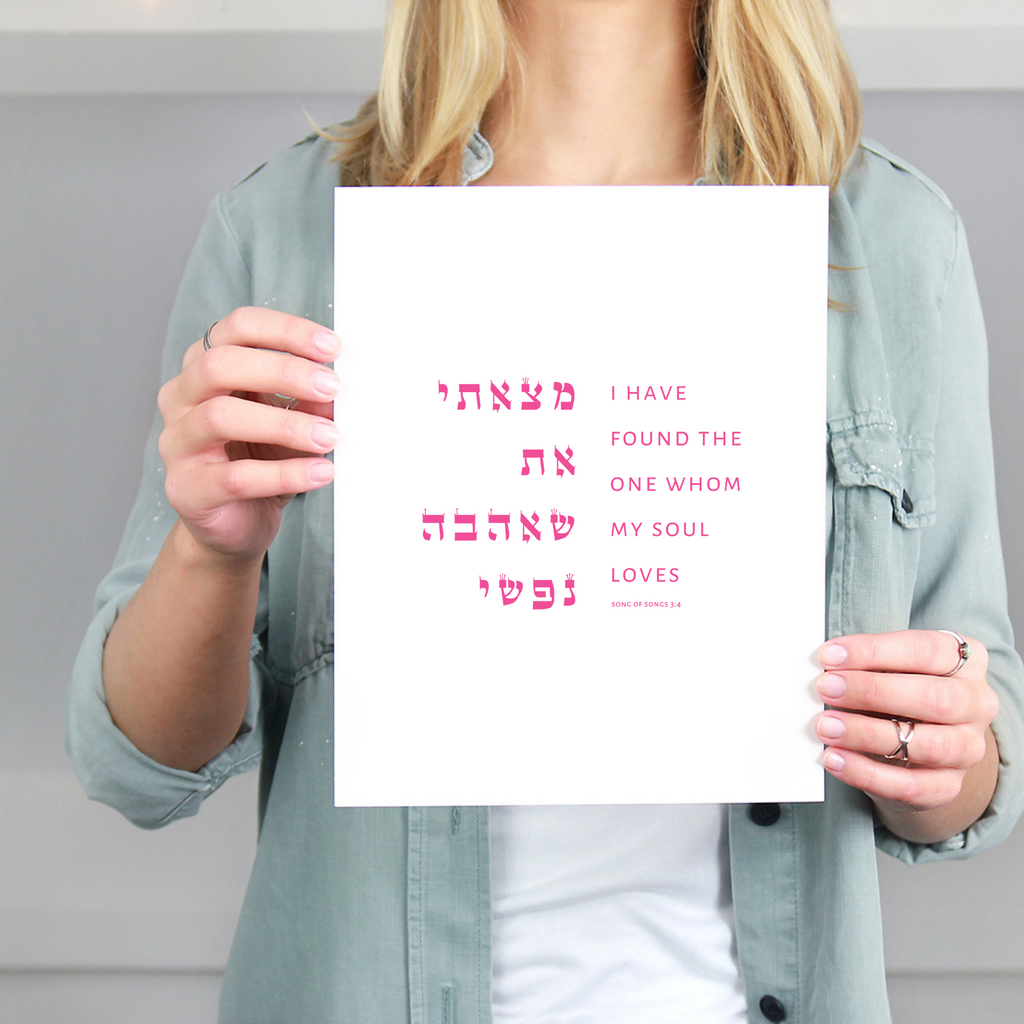 מצאתי
את
שאהבה
נפשי
I HAVE
FOUND THE
ONE WHOM
MY SOUL
LOVES
SONG OF SONGS 3:4